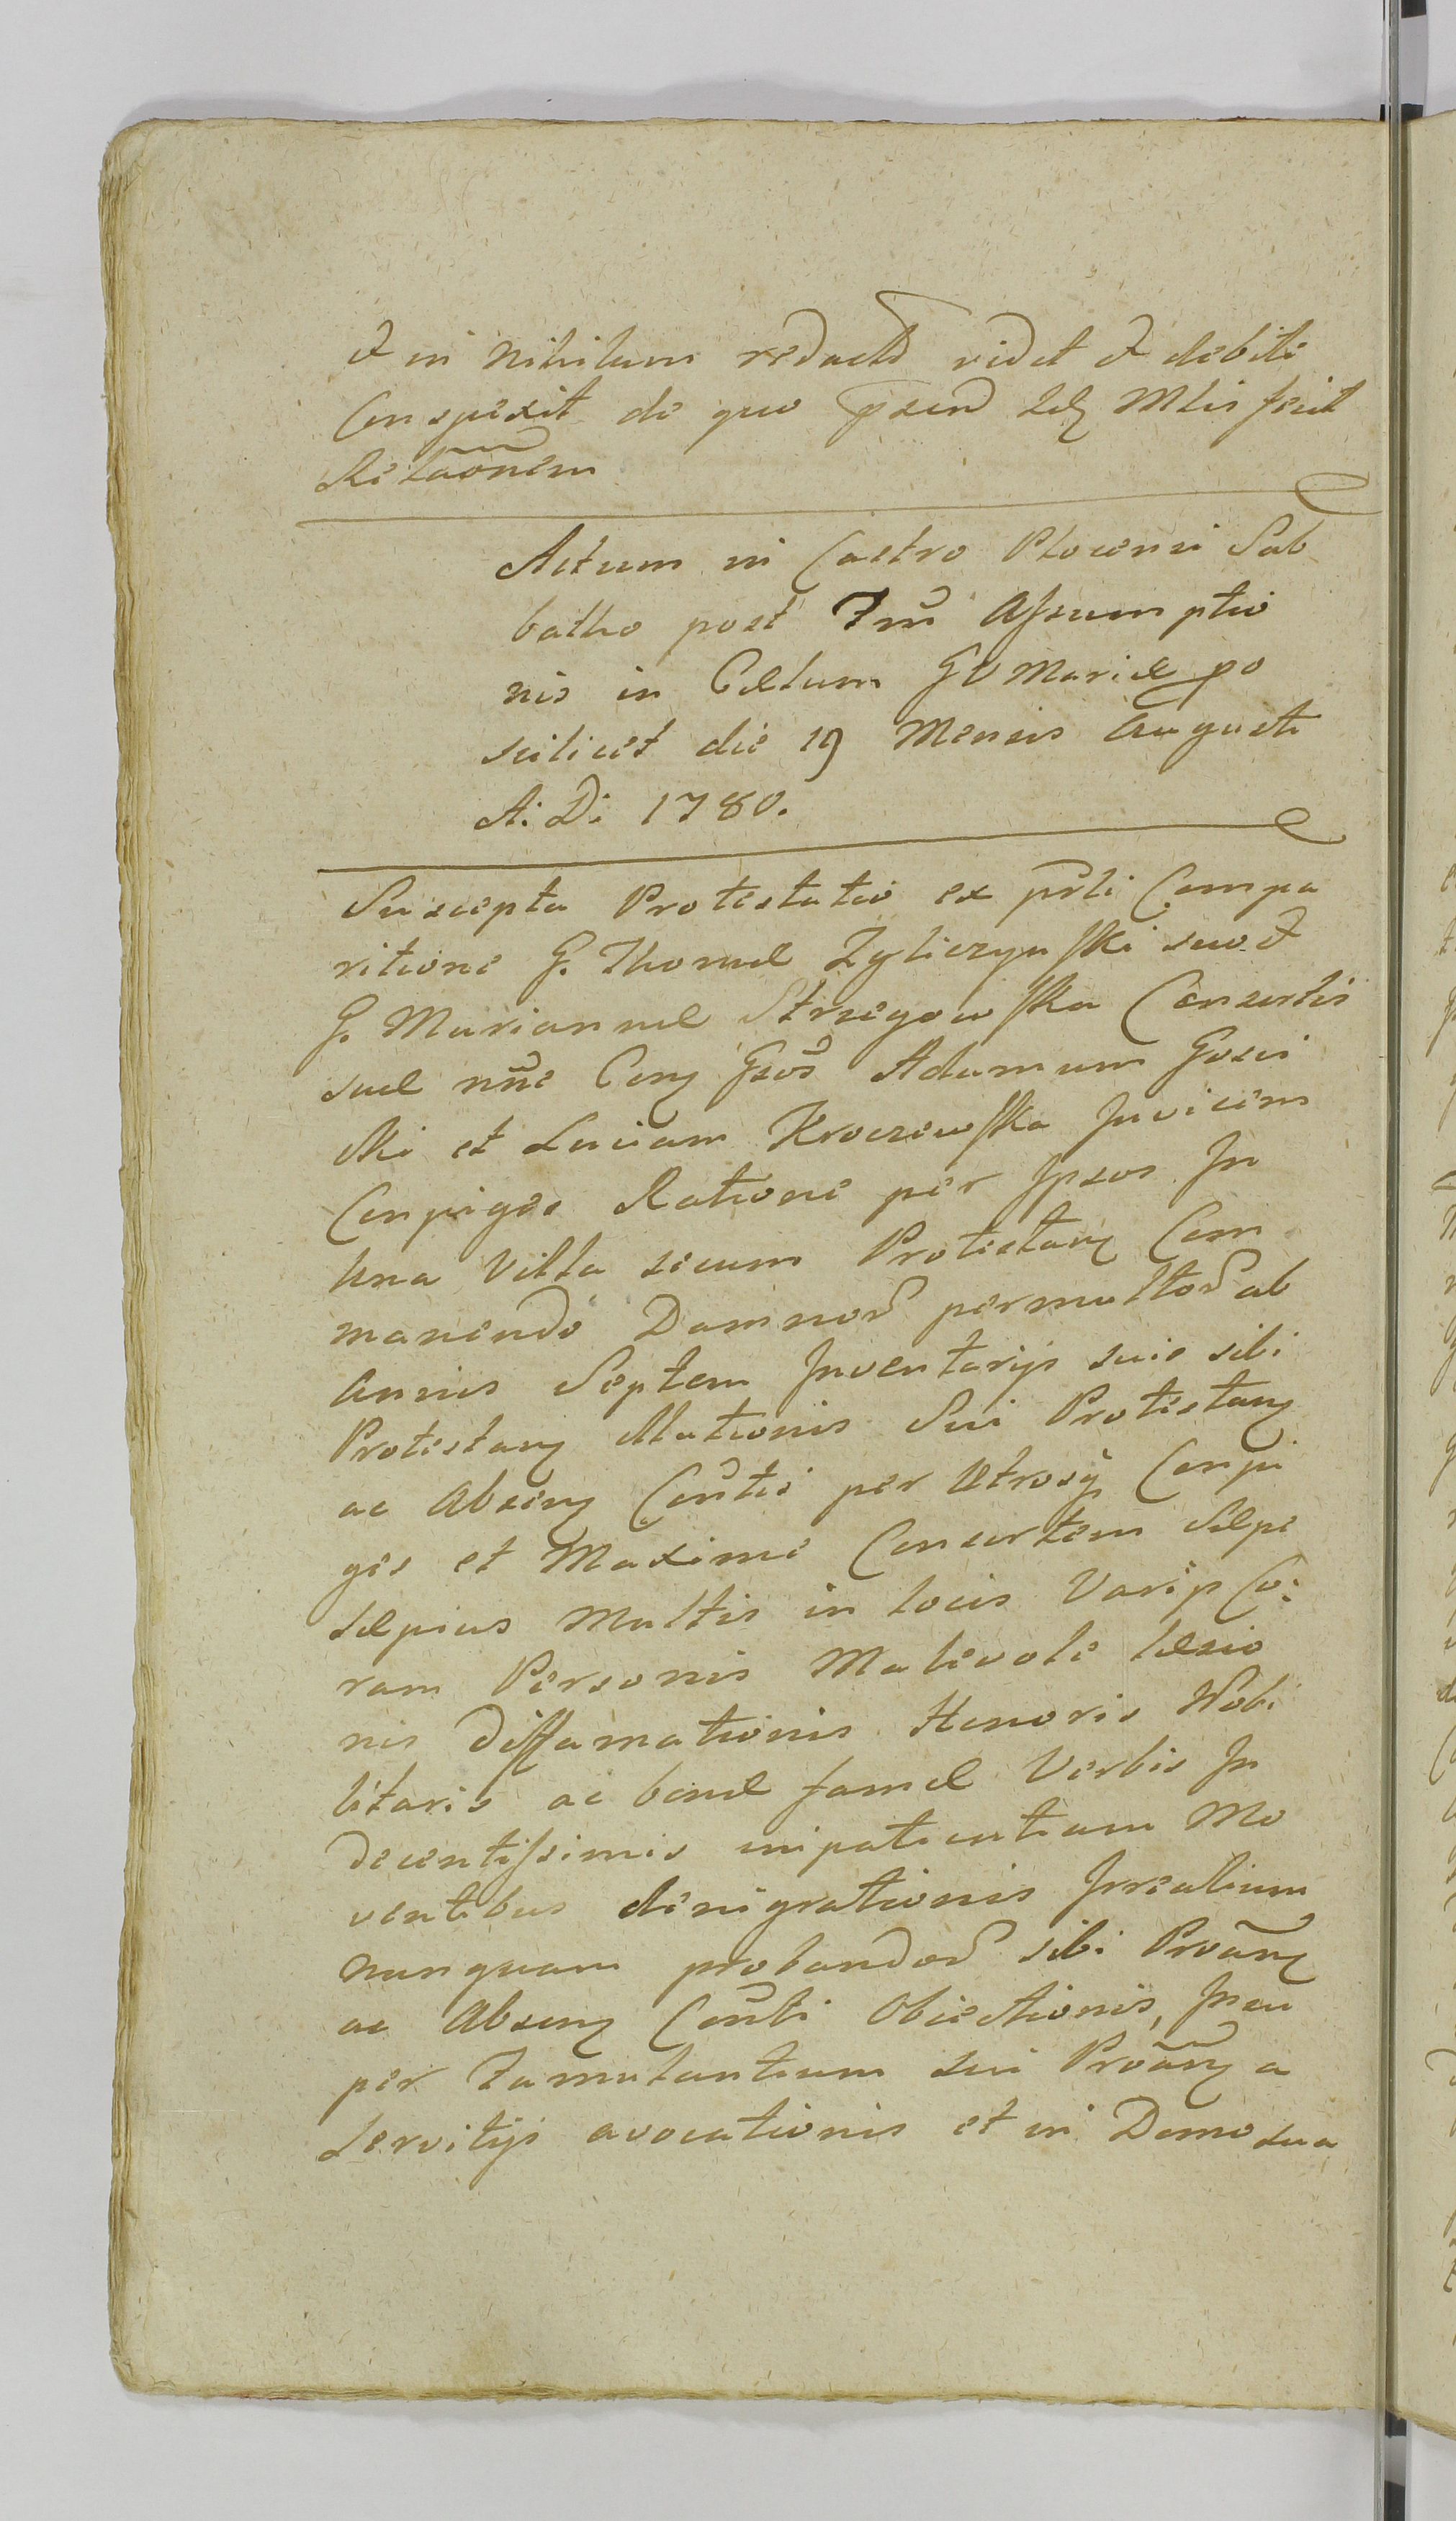 et in Nihilum redactã vidit et debite
Conspexit de quo p̃sens Idq Mlis fecit
Relãonem
Actum in Castro Plocensi Sab
batho post Fm̃ Assumptio
nis in Cœlum GV Mariæ po
scilicet die 19 Mensis Augusti
A: D: 1780.
Suscepta Protestatio ex p̃rti Compa
ritione G. Thomæ Zyliczynski suo et
G. Mariannæ Strzegowska Consortis
suæ nñe Cong Gsos̃ Adamum Gosci
cki et Luciam Kroczewska Invicem
Conjuges Ratione per Ipsos In
Una Villa secum Protestang Com
manendo Damnor̃ permultor̃ ab
Annis Septem Inventarijs suis sibi
Protestang Illationis Sui Protestang
ac Abseng Con̄tis per Utrosq̃ Conju
ges et Maxime Consortem Sæpe
sæpius Multis in locis Varijs Co:
ram Personis Malevole læsio
nis Diffamationis Honoris Nobi
litaris ac bonæ famæ Verbis In
decentissimis impatientiam Mo
ventibus denigrationis Irrealium
nunquam probandor̃ sibi Proãng
ac Abseng Con̄ti Obiectionis, Insu
per Famulantium sui Proãng a
Servitijs avocationis et in Domo sua